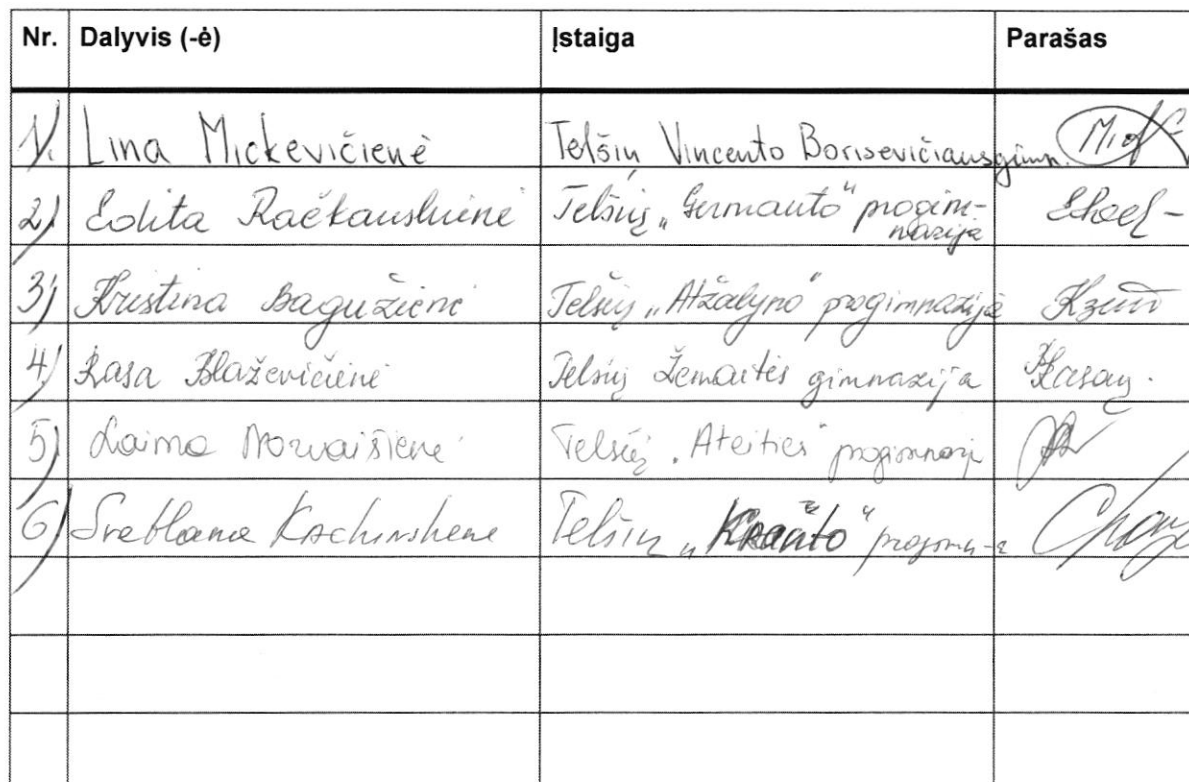 Nr. Dalyvis (-ė) Įstaiga Parašas
1. Lina Mickevičienė Telšių Vincento Borisevičiaus gimn.
2) Edita Račkauskienė Telšių „Germanto“ progim-
nazija
3) Kristina Bagužienė Telšių „Atžalyno“ progimnazija
4) Rasa Blaževičienė Telšių Žemaitės gimnazija
5) Laima Norvaišienė Telšių „Ateities“ progimnazija
6) Svetlana Telšių „Kranto“ progimn-a